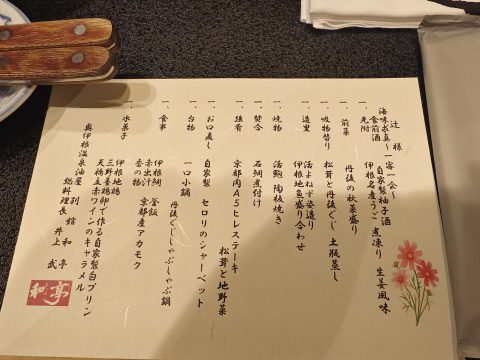 辻 様
海味求真～一客一会～
食前酒 自家製柚子酒
一、先附 伊根名産うご 煮凍り 生姜風味
一、前菜 丹後の秋菜盛り
一、吸物替り 松茸と丹後ぐじ 土瓶蒸し
一、造里 活よねず姿造り
伊根地魚盛り合わせ
一、焼物 活鮑 陶板焼き
一、焚合 石鯛煮付け
一、強肴 京都肉A5ヒレステーキ
松茸と地野菜
一、お口直し 自家製 セロリのシャーベット
一、台物 一口小鍋
丹後ぐじしゃぶしゃぶ鍋
一、食事 伊根鯛 釜飯
赤出汁 京都産アカモク
香の物
一、水菓子 伊根地鶏
三野養鶏卵で作る自家製白プリン
天橋立赤ワインのキャラメル
奥伊根温泉油屋別館 和亭
総料理長 井上 武
和亭